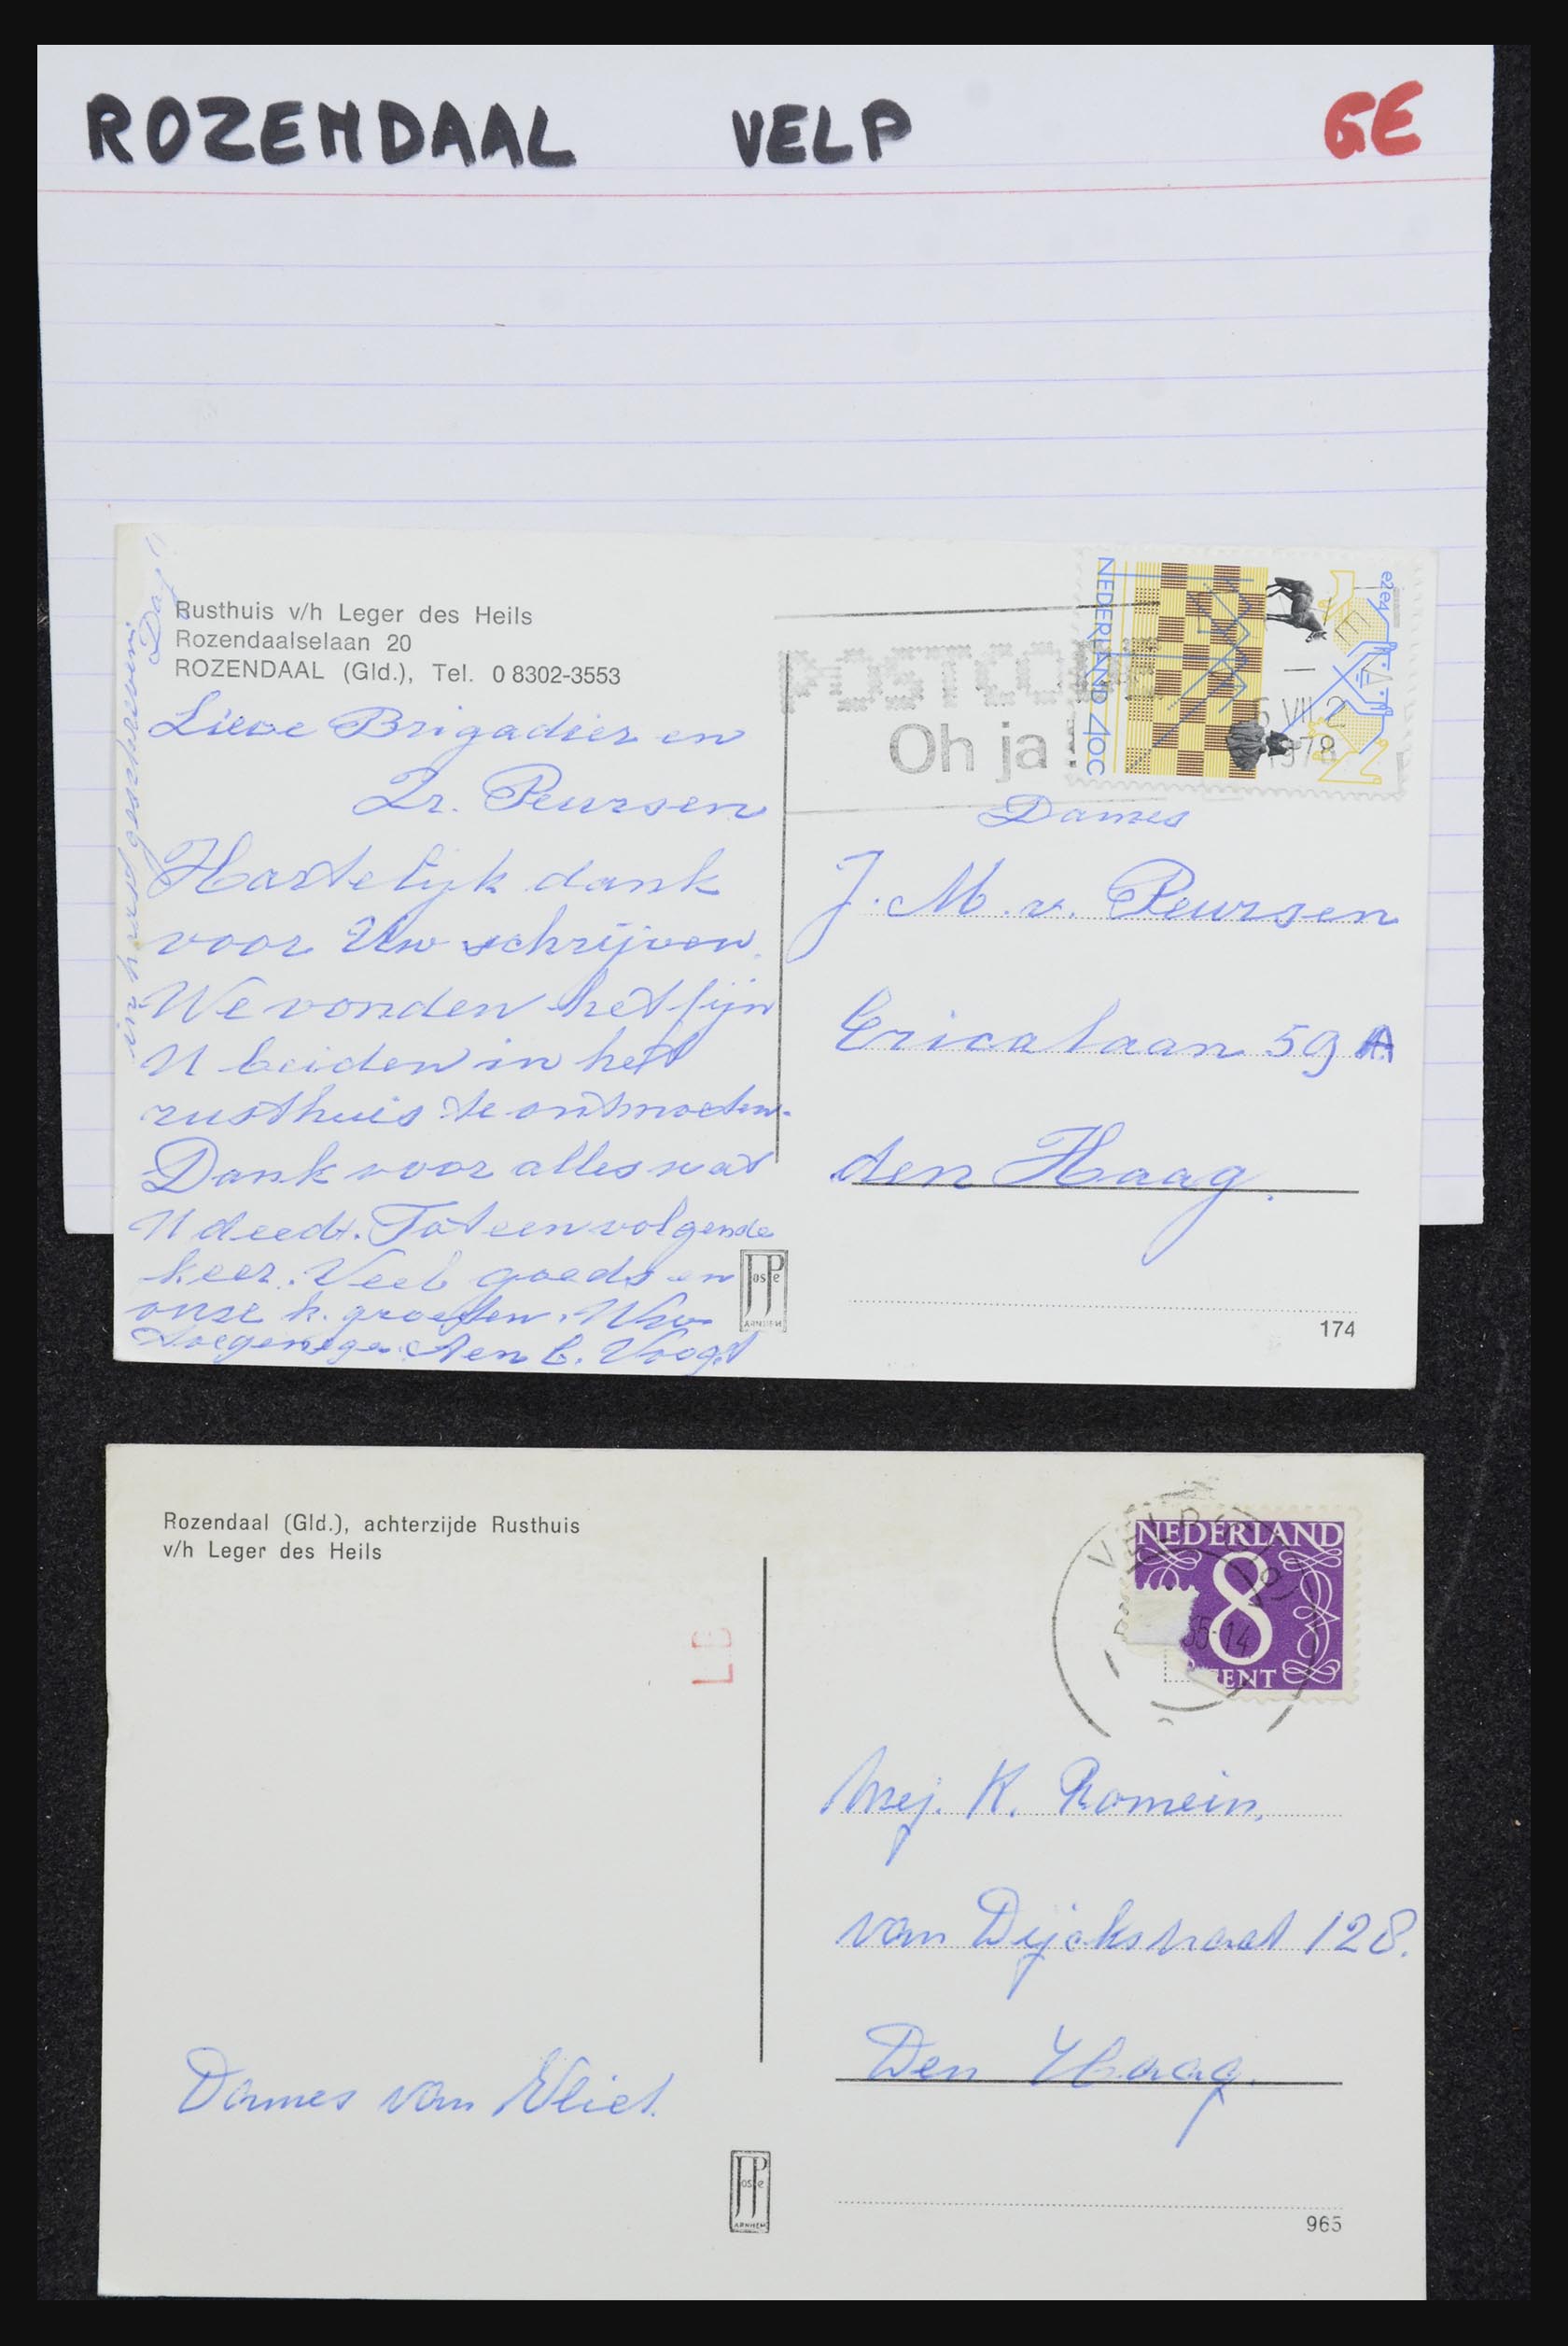 ROZENDAAL VELP GE
Rusthuis v/h Leger des Heils
Rozendaalselaan 20
ROZENDAAL (Gld.), Tel. 0 8302-3553
Lieve Brigadier en
Zr. Peursen
Hartelijk dank
voor Uw schrijven.
We vonden het fijn
U beiden in het
rusthuis te ontmoeten.
Dank voor alles wat
U deedt. Tot een volgende
keer. Veel goeds en
onze h. groeten. Uw
toegenegen A en C. Voogt
in haast geschreven
Dag
POSTCODE
Oh ja!
VII 2
1978
NEDERLAND 40c
e2e4
Dames
J. M. v. Peursen
Ericalaan 59 A
den Haag.
JosPe
ARNHEM
174
Rozendaal (Gld.), achterzijde Rusthuis
v/h Leger des Heils
LB
VELP
65-14
NEDERLAND
8
CENT
Mej. K. Romein,
van Dijckstraat 128.
Den Haag.
Dames van Vliet.
JosPe
ARNHEM
965